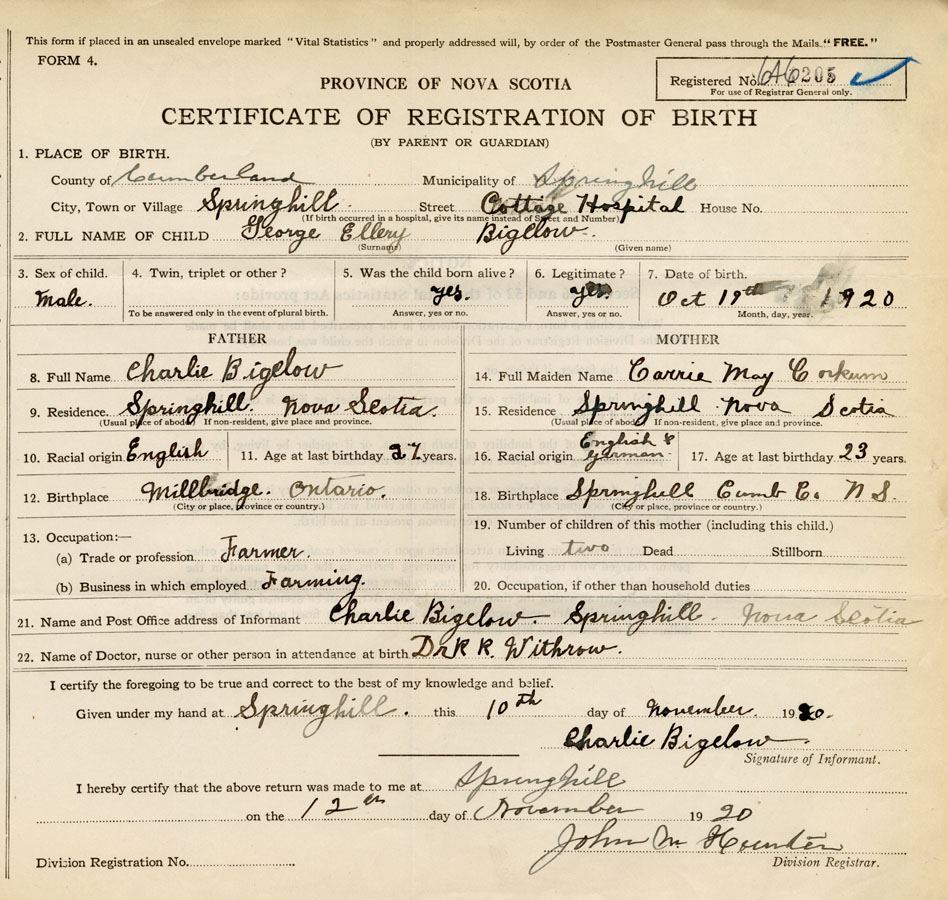 This form if placed in an unsealed envelope marked "Vital Statistics" and properly addressed will, by order of the Postmaster General pass through the Mails "FREE."
FORM 4.
Registered No. 205
For use of Registrar General only.
PROVINCE OF NOVA SCOTIA
CERTIFICATE OF REGISTRATION OF BIRTH
(BY PARENT OR GUARDIAN)
1. PLACE OF BIRTH.
County of Cumberland Municipality of Springhill
City, Town or Village Springhill. Street Cottage Hospital House No.
(If birth occurred in a hospital, give its name instead of Street and Number)
2. FULL NAME OF CHILD George Ellery Bigelow.
(Surname) (Given name)
3. Sex of child. 4. Twin, triplet or other? 5. Was the child born alive? 6. Legitimate? 7. Date of birth.
Male. yes. yes Oct 19th 1920
To be answered only in the event of plural birth. Answer, yes or no. Answer, yes or no. Month, day, year.
FATHER MOTHER
8. Full Name Charlie Bigelow 14. Full Maiden Name Carrie May Corkum
9. Residence. Springhill. Nova Scotia. 15. Residence Springhill Nova Scotia
(Usual place of abode. If non-resident, give place and province. (Usual place of abode. If non-resident, give place and province.
10. Racial origin English 11. Age at last birthday 27 years. 16. Racial origin English & German. 17. Age at last birthday 23 years.
12. Birthplace Millbridge. Ontario. 18. Birthplace Springhill Cumb Co. N S.
(City or place, province or country.) (City or place, province or country.)
13. Occupation:— 19. Number of children of this mother (including this child.)
(a) Trade or profession Farmer. Living two Dead Stillborn
(b) Business in which employed Farming. 20. Occupation, if other than household duties
21. Name and Post Office address of Informant Charlie Bigelow. Springhill. Nova Scotia
22. Name of Doctor, nurse or other person in attendance at birth Dr R R. Withrow.
I certify the foregoing to be true and correct to the best of my knowledge and belief.
Given under my hand at Springhill. this 10th day of November. 1920.
Charlie Bigelow.
Signature of Informant.
I hereby certify that the above return was made to me at Springhill
on the 12th day of November 1920
John M Hunter
Division Registration No. Division Registrar.